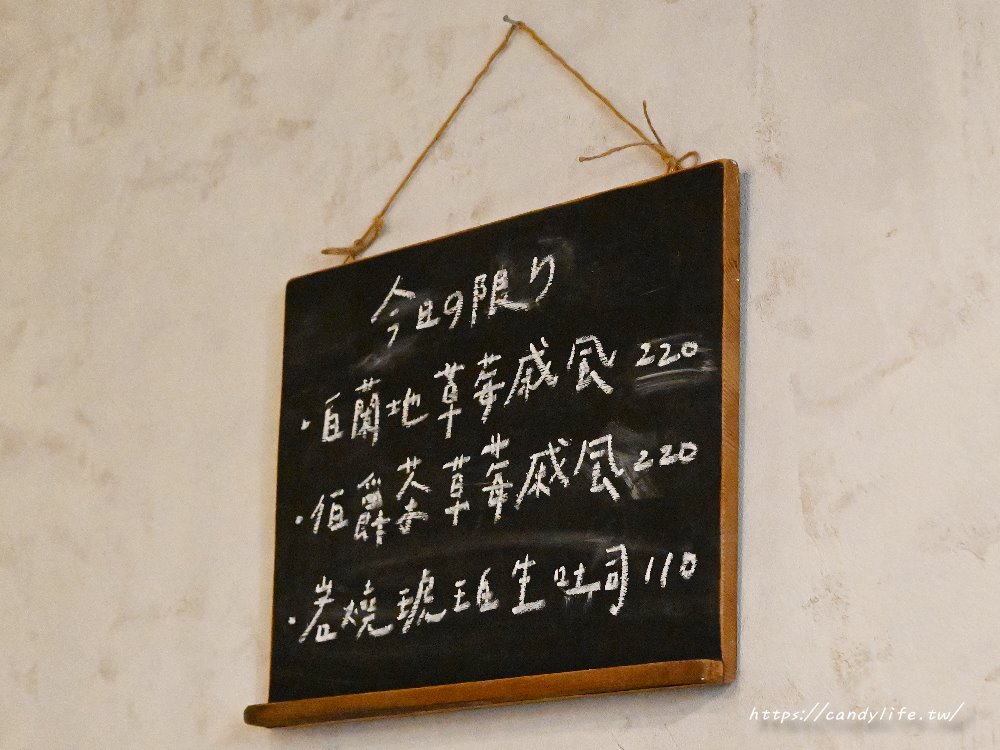 今日限り
·白蘭地草莓戚風 220
·伯爵茶草莓戚風 220
·岩燒琥珀生吐司 110
https://candylife.tw/